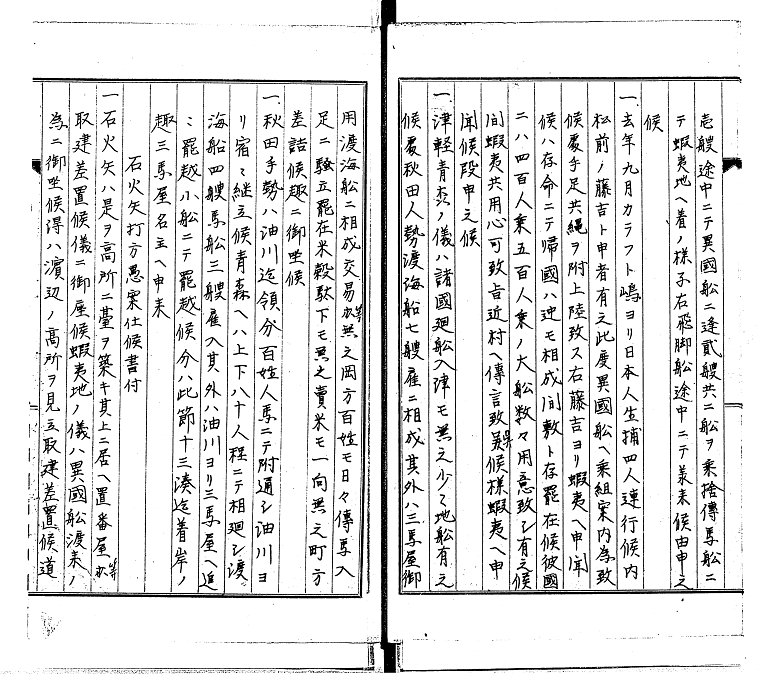 壱艘途中ニテ異國船ニ逢貳艘共ニ船ヲ乗捨傳馬船ニ
テ蝦夷地ヘ着ノ様子右飛脚船途中ニテ義未候由申之
候
一去年九月カラフト嶋ヨリ日本人生捕四人連行候内
松前ノ藤吉ト申者有之此度異國船ヘ乗組案内為致
候處手足共縄ヲ附上陸致ス右藤吉ヨリ蝦夷ヘ申聞
候ハ存命ニテ帰國ハ迚モ相成間敷ト存罷在候彼國
ニハ四百人乗五百人乗ノ大船数々用意致シ有之候
間蝦夷共用心可致旨近村ヘ傳言致呉候様蝦夷ヘ申
聞候段申之候
一津軽青森ノ儀ハ諸國廻船入津モ無之少々地船有之
候處秋田人勢渡海船七艘雇ニ相成其外ハ三馬屋御
用渡海船ニ相成交易等無之困方百姓モ日々傳馬入
足ニ騒立罷在米穀駄下モ無之賣米モ一向無之町方
差詰候趣ニ御坐候
一秋田手勢ハ油川迄領分百姓人馬ニテ附通シ油川ヨ
リ宿々継立候青森ヘハ上下八十人程ニテ相廻シ渡
海船四艘馬船三艘雇入其外ハ油川ヨリ三馬屋ヘ追
々罷越小船ニテ罷越候分ハ此節十三湊迄着岸ノ
趣三馬屋名主ヘ申来
石火矢打方愚案仕候書付
一石火矢ハ是ヲ高所ニ臺ヲ築キ其上ニ居ヘ置番屋等
取建差置候儀ニ御座候蝦夷地ノ儀ハ異國船渡来ノ
為ニ御坐候得ハ濱辺ノ高所ヲ見立取建差置候道